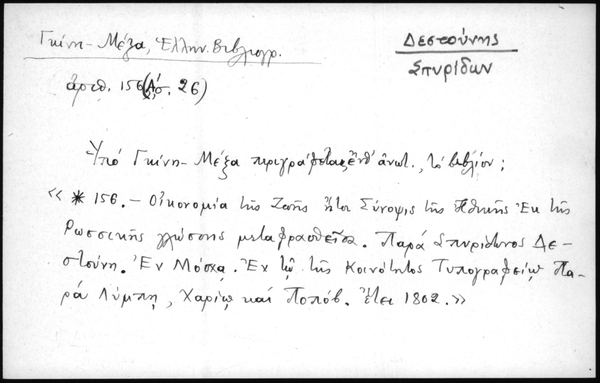 Γκίνη-Μέξα, Ἑλλην. Βιβλιογρ.
Δεστούνης
Σπυρίδων
ἀριθ. 156 (Α', σ. 26)
Ὑπό Γκίνη-Μέξα περιγράφεται, ἔνθ' ἀνωτ., τὸ βιβλίον:
« * 156. - Οἰκονομία τῆς Ζωῆς ἤτοι Σύνοψις τῆς Ἠθικῆς Ἐκ τῆς
Ρωσσικῆς γλώσσης μεταφρασθεῖσα. Παρά Σπυρίδωνος Δε-
στούνη. Ἐν Μόσχᾳ. Ἐν τῷ τῆς Κοινότητος Τυπογραφείῳ Πα-
ρά Λύμπῃ, Χαρίῳ καί Ποπόβ. ἔτει 1802. »